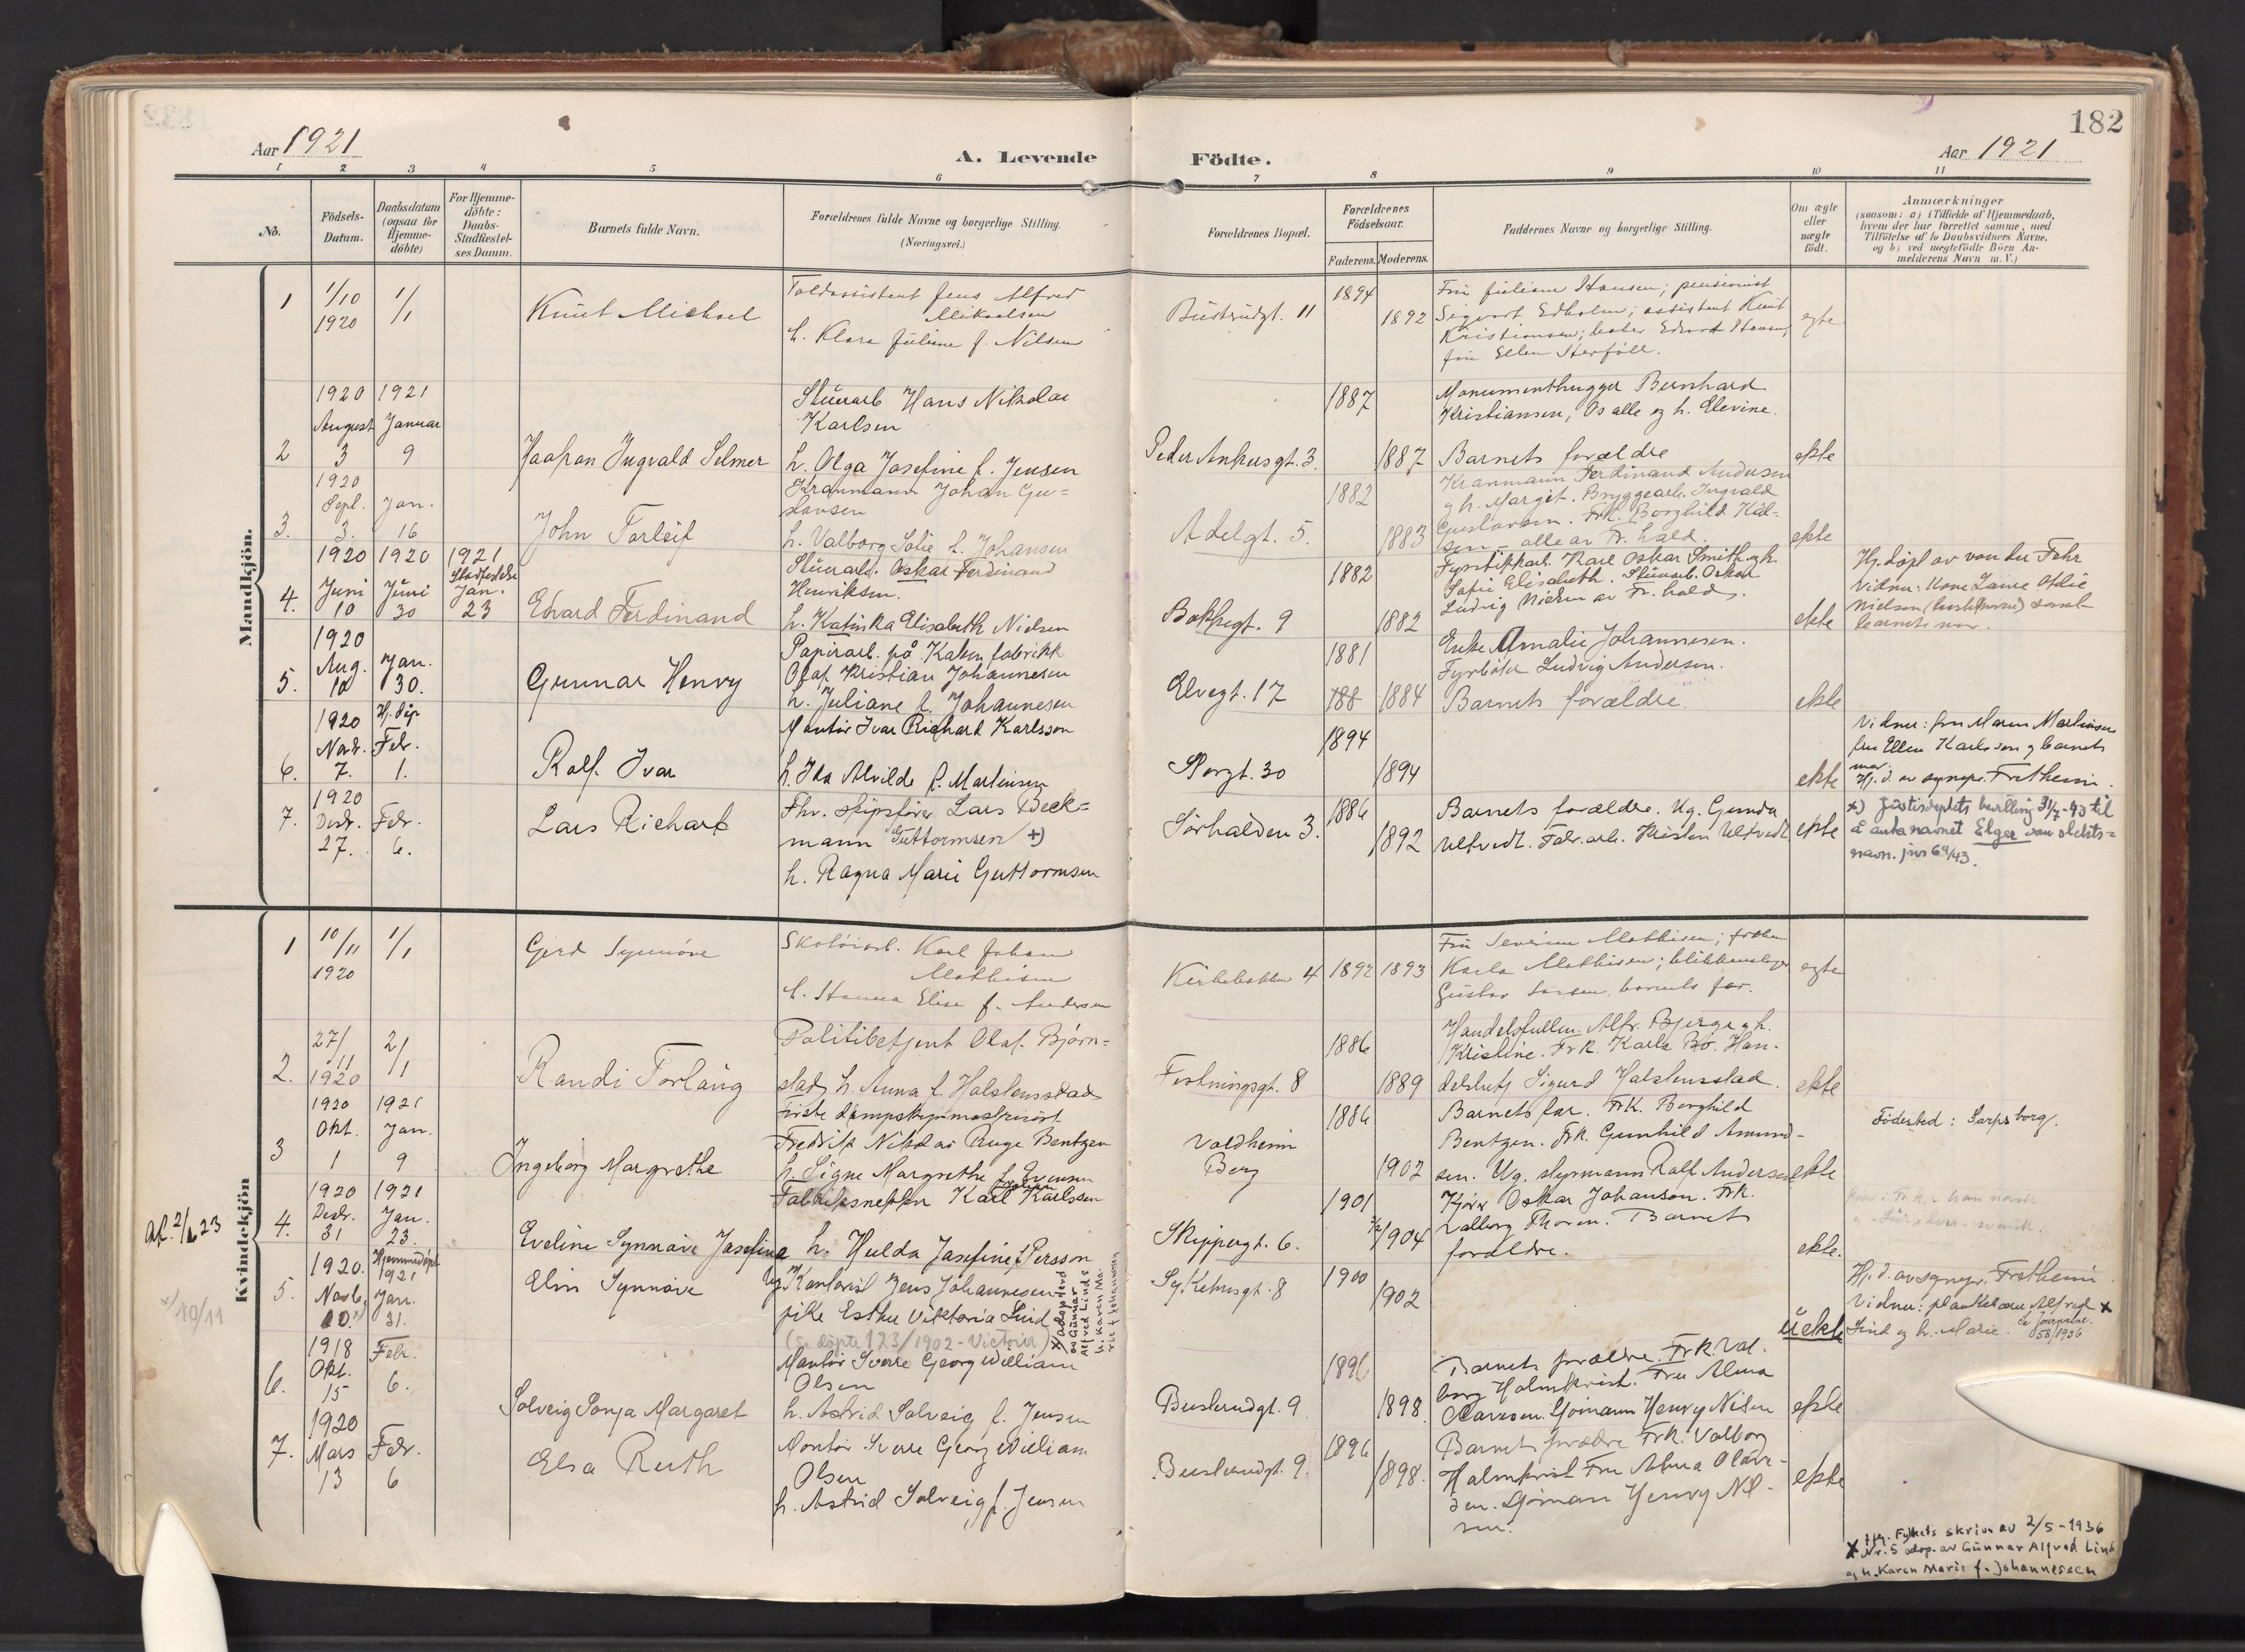 182
Aar 1921
A. Levende
Födte.
Aar 1921
1 2 3 4 5 6 7 8 9 10 11
No.
Födsels-
Datum.
Daabsdatum
(ogsaa for
Hjemme-
döbte)
For Hjemme-
döbte:
Daabs-
Stadfæstel-
ses Datum.
Barnets fulde Navn.
Forældrenes fulde Navne og borgerlige Stilling.
(Næringsvei.)
Forældrenes Bopæl.
Forældrenes
Födselsaar.
Faderens. Moderens.
Faddernes Navne og borgerlige Stilling.
Om ægte
eller
uægte
födt.
Anmærkninger
(saasom: a) i Tilfælde af Hjemmedaab,
hvem der har forrettet samme, med
Tilföielse af to Daabsvidners Navne,
og b) ved uægtefödte Börn An-
melderens Navn m. V.)
Mandkjön.
1
1/10
1920
1/1
Knut Michael
Toldassistent Jens Alfred
Mikaelsen
h. Klara Juliane f. Nilsen
Buskrudgt. 11
1894
1892
Fru Juliane Hansen; pensionist
Sigvart Edholm; assistent Knut
Kristiansen; Edvard Hansen,
fru Ellen
egte
2
1920
August
3
1921
Januar
9
Haakon Ingvald Selmer
Stuearb Hans Nikolai
Karlsen
h. Olga Josefine f. Jensen
Peder Ankersgt. 3.
1887
1887
Monumenthugger Bernhard
Kristiansen, Os alle og h. Elevine.
Barnets forældre
ekte
3.
1920
Sept.
3.
Jan.
16
John Torleif
Kranmann Johan Gu=
stavsen
h. Valborg Sofie f. Johansen
Adelgt. 5.
1882
1883
Kranmann Ferdinand Andersen
og h. Margit. Bryggearb. Ingvald
Gustavsen. Frk. Borghild Kål=
sen - alle av Fr. hald.
ekte
4.
1920
Juni
10
1920
Juni
30
1921
Stadfestelse
Jan.
23
Edvard Ferdinand
Stuearb. Oskar Ferdinand
Henriksen.
h. Katinka Elisabeth Nielsen
Bakkegt. 9
1882
1882
Fyrstikkarb. Karl Oskar Smith og h.
Sofie Elisabeth. Stuearb. Oskar
Ludvig Nielsen av Fr. hald.
ekte
Hj. døpt av von der Fehr
Vidner: Kone Laura Otilie
Nielsen samt
barnets mor.
5.
1920
Aug.
12
Jan.
30.
Gunnar Henry
Papirarb. på Katen fabrikk
Olaf Kristian Johannesen
h. Juliane f. Johannesen
Elvegt. 17
1881
188
1884
Enke Amalie Johannesen.
Fyrbøter Ludvig Andersen.
Barnets forældre.
ekte
6.
1920
Novbr.
7.
Hj. døp
Febr.
1.
Rolf Ivar
Montør Ivar Richard Karlsson
h. Ida Alvilde f. Martinsen
Storgt. 30
1894
1894
ekte
Vidner: fru Maren Martinsen
fru Ellen Karlsson og barnets
mor.
Hj. d. av sognepr. Fretheim.
7.
1920
Desbr.
27.
Febr.
6.
Lars Richard
Fhv. skipsfører Lars Beck=
mann Guttormsen +)
h. Ragna Marie Guttormsen
Sørhalden 3.
1886
1892
Barnets forældre. Ug. Gunda
Ulfvedt. Fabr. arb. Kristen Ulfvedt
ekte
x) Justisdeptets bevilling 31/7-43 til
å anta navnet Elger som slekts=
navn. jnr 64/43.
Kvindekjön
1
10/11
1920
1/1
Gerd Synnøve
Skotøiarb. Karl Johan
Mathisen
h. Hanna Elise f. Andersen
Kirkebakken 4
1892
1893
Fru Severine Mathisen; frøken
Karla Mathisen; blikkenslager
Gustav Larsen, barnets far.
egte
2.
27/11
1920
2/1
Randi Torlaug
Politibetjent Olaf Bjørn=
stad, h. Anna f. Halstensstad
Festningsgt. 8
1886
1889
Handelsfullm. Alfr. Bjerge og h.
Kristine. Frk. Karla Bø. Han-
delsbetj. Sigurd Halstensstad.
ekte
3
1920
Okt.
1
1921
Jan.
9
Ingeborg Margrethe
Første dampskipsmaskinist
Fredrik Nikolai Ruge Bentzen
h. Signe Margrethe f. Evensen
Valdheim
Berg
1886
1902
Barnets far. Frk. Borghild
Bentzen. Frk. Gunhild Amund-
sen. Ug. styrmann Ralf Andersen
ekte
Fødested: Sarpsborg.
4.
1920
Desbr.
31
1921
Jan.
23.
Eveline Synnøve Josefine
Fabrikksnekker Karl Karlssen
h. Hulda Josefine f. Persson
Skippergt. 6.
1901
1904
Kjører Oskar Johanson. Frk.
Valborg Thoren. Barnets
forældre.
ekte.
5.
x) 10/11
1920.
Novbr.
10. x)
Hjemmedøpt
1921
Jan.
31.
Elin Synnøve
Ug. Kontorist Jens Johannesen
pike Esther Viktoria Lind
(Se døpte 123/1902 - Victoria)
x) adoptert
av Gunnar
Alfred Lind &
h. Karen Ma-
rie f. Johannesen
1900
1902
uekte
Hj. d. av sognepr. Fretheim
Vidner: Alfred x
Lind og h. Marie.
58/1936
6.
1918
Okt.
15
Febr.
6.
Solveig Sonja Margaret
Montør Sverre Georg William
Olsen
h. Astrid Solveig f. Jensen
Buskrudgt. 9
1896
1898.
Barnets forældre. Frk. Val-
borg Holmkvist. Fru Alma
Olavesen. Sjømann Henry Nilsen
ekte
7.
1920
Mars
13
Febr.
6
Elsa Ruth
Montør Sverre Georg William
Olsen
h. Astrid Solveig f. Jensen
Buskrudgt. 9.
1896
1898.
Barnets forældre Frk. Valborg
Holmkvist Fru Alma Olave-
sen. Sjømann Henry Nil-
sen.
ekte
x Ifg. Fylkets skriv av 2/5-1936
Nr. 5 adop. av Gunnar Alfred Lind
og h. Karen Marie f. Johannessen